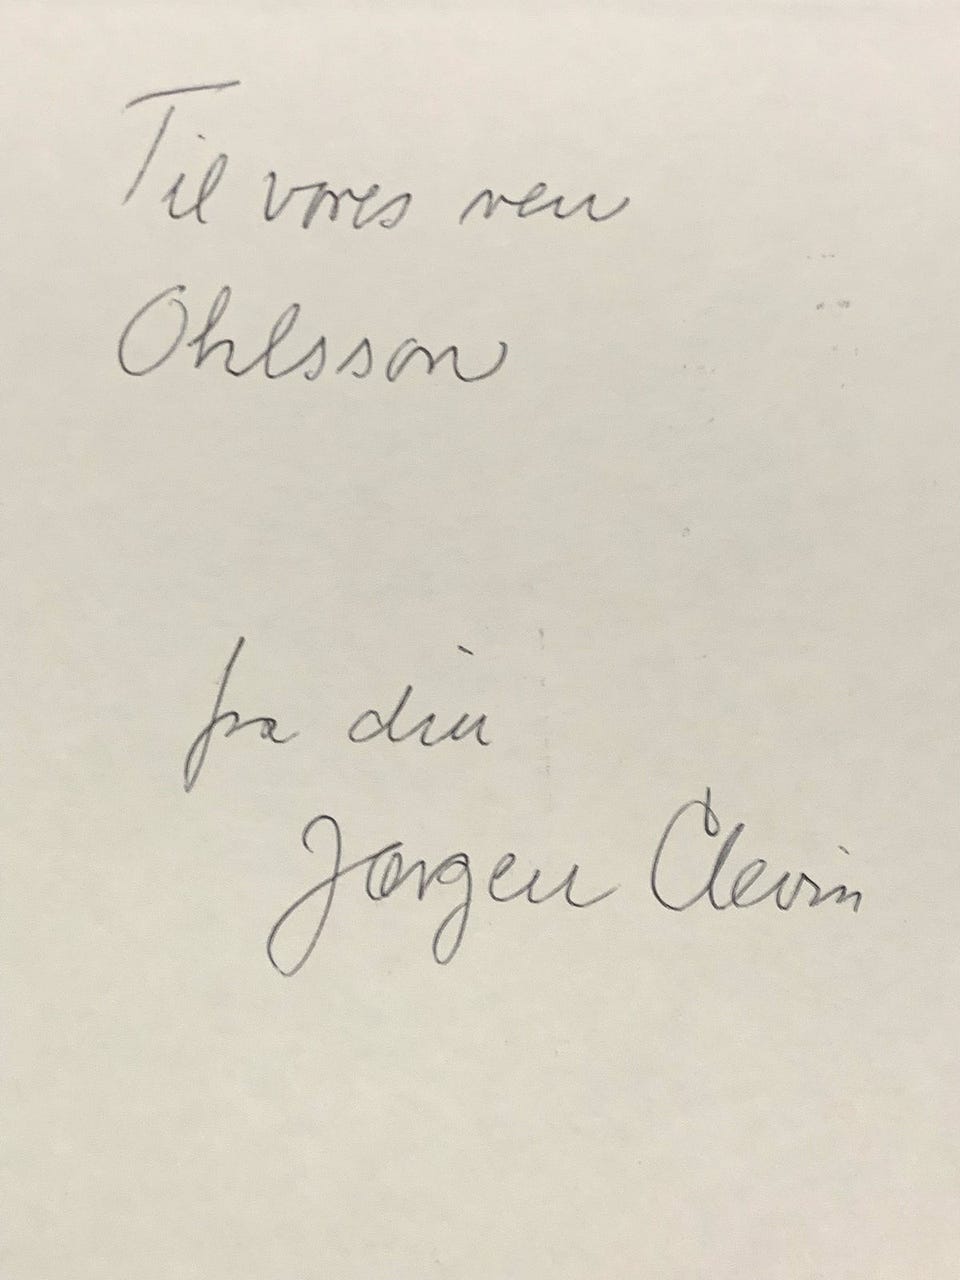 Til vores ven
Ohlsson
fra din
Jørgen Clevin